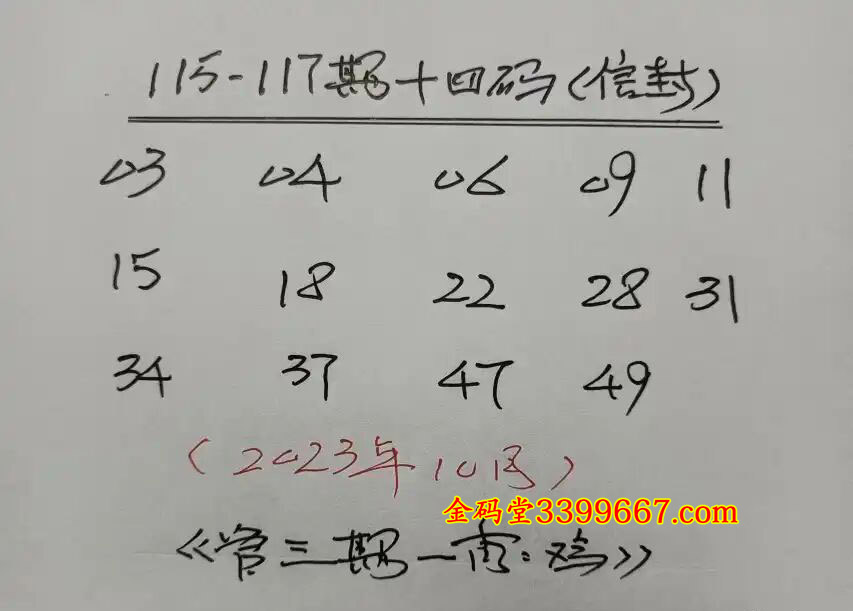 115-117期十四码(信封)
03 04 06 09 11
15 18 22 28 31
34 37 47 49
(2023年10月)
金码堂3399667.com
《管三期一肖:鸡》